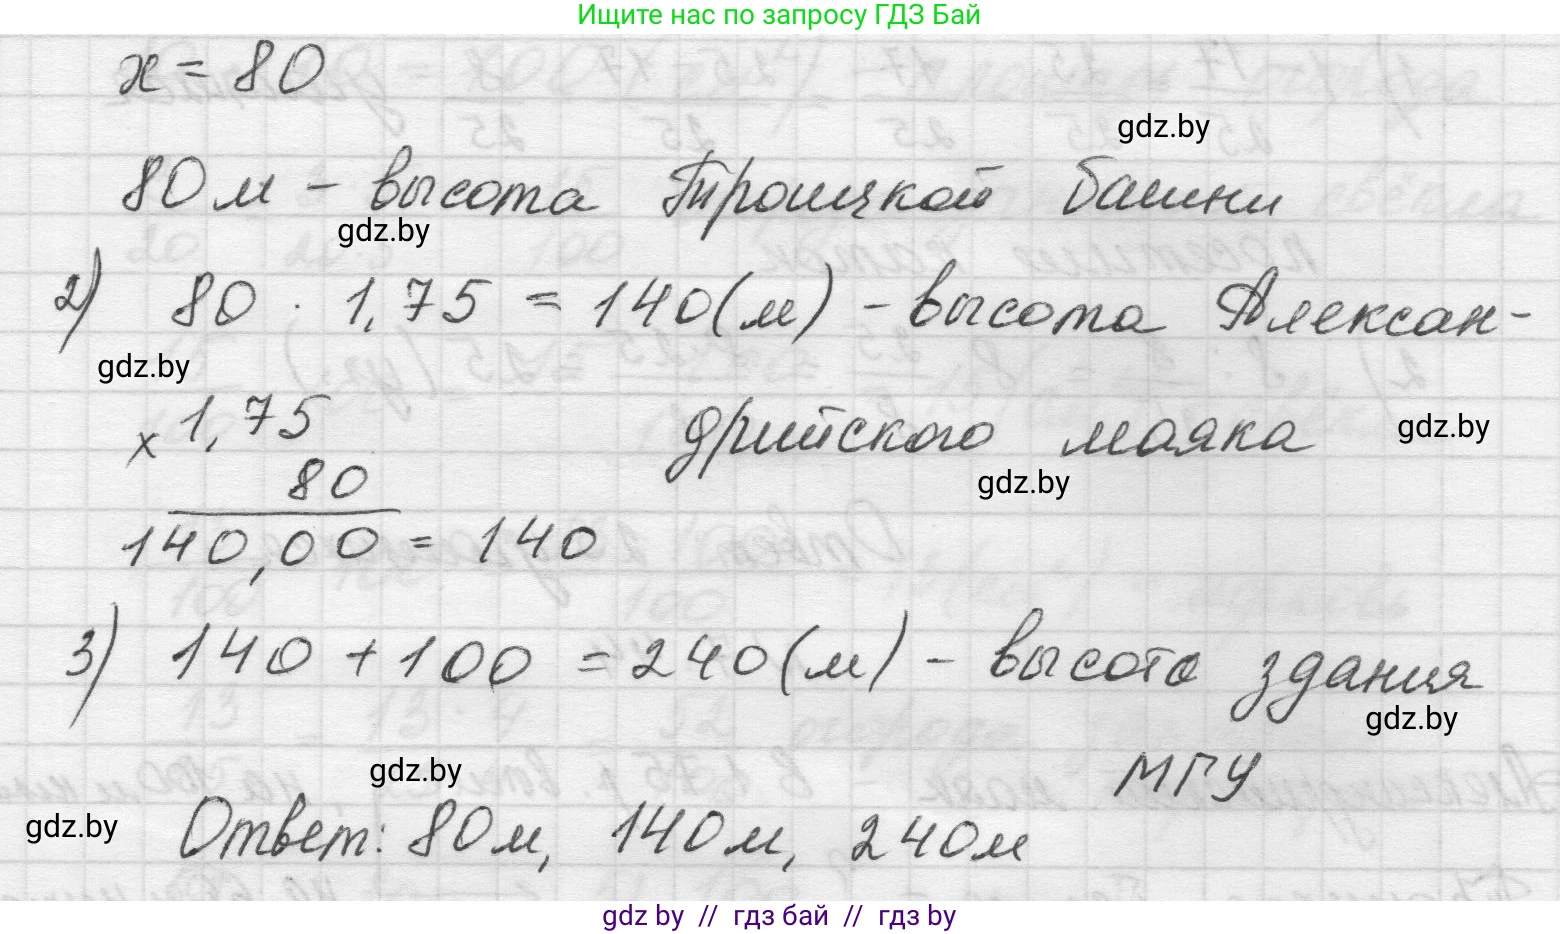 Ищите нас по запросу ГДЗ Бай
x = 80
gdz.by
80 м - высота Троицкой башни
gdz.by
2) 80 · 1,75 = 140 (м) - высота Алексан-
gdz.by
x 1,75
дрийского маяка
gdz.by
80
gdz.by
140,00 = 140
3) 140 + 100 = 240 (м) - высота здания
gdz.by
МГУ
gdz.by
gdz.by
Ответ: 80 м, 140 м, 240 м
gdz by // гдз бай // гдз by